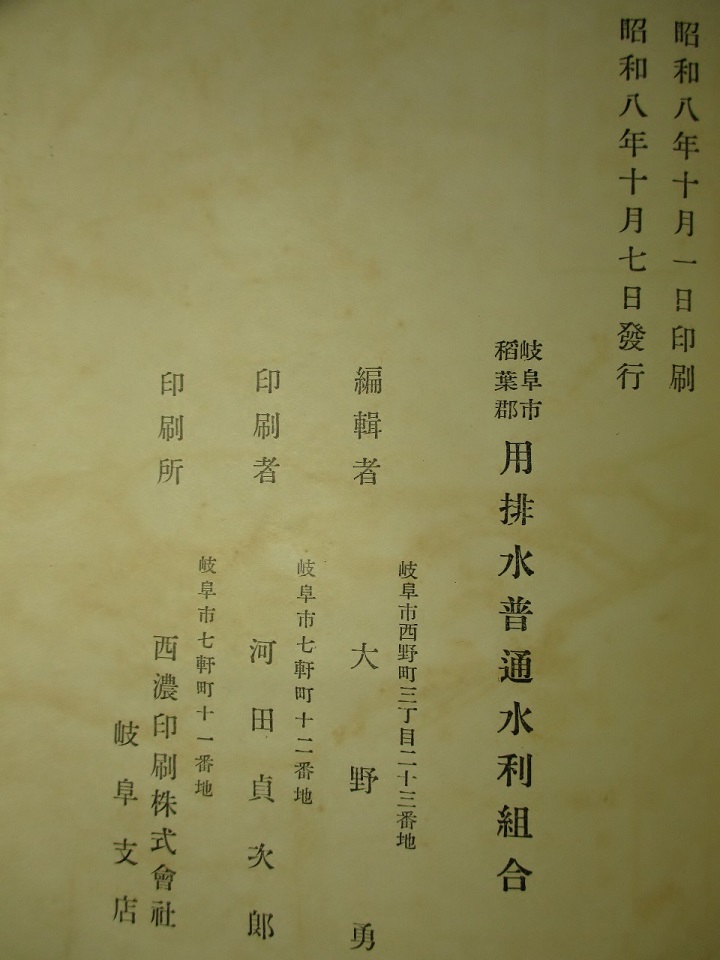 昭和八年十月一日印刷
昭和八年十月七日發行
岐阜市
稻葉郡
用排水普通水利組合
岐阜市西野町三丁目二十三番地
編輯者 大野勇
岐阜市七軒町十二番地
印刷者 河田貞次郎
岐阜市七軒町十一番地
印刷所 西濃印刷株式會社
岐阜支店